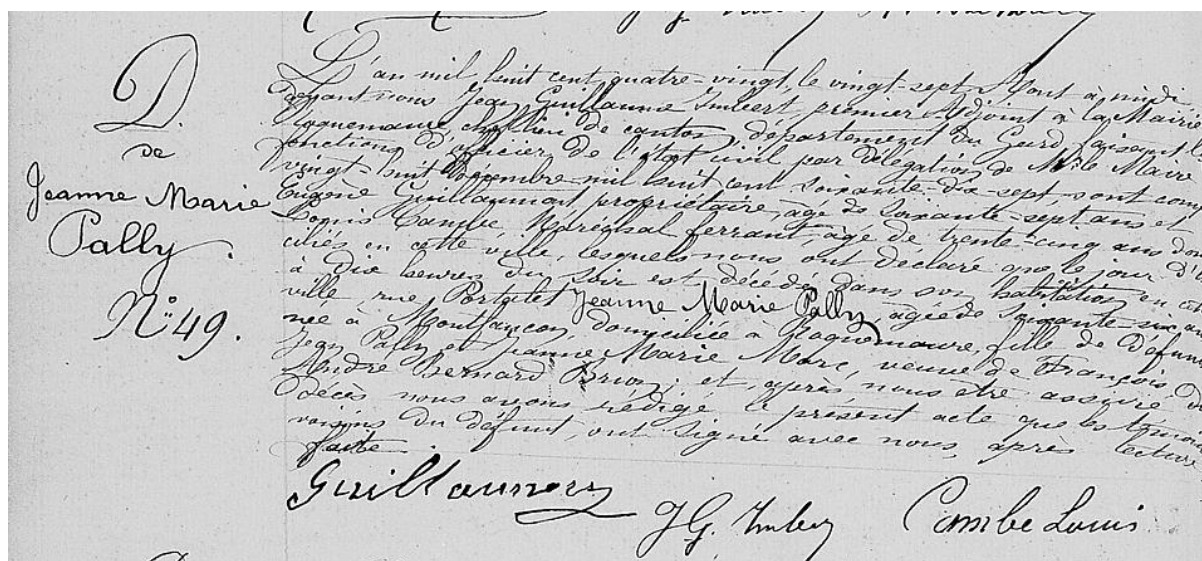 D.
de
Jeanne Marie
Pally.
N° 49.
L'an mil huit cent quatre-vingt, le vingt-sept Aout à midi
devant nous Jean Guillaume Imbert, premier Adjoint à la Mairie
Roquemaure, chef-lieu de canton, département du Gard faisant
fonctions d'officier de l'état civil par délégation de Mr le Maire
vingt-huit Novembre mil huit cent soixante-dix-sept, sont com
Eugène Guillaumont propriétaire, âgé de soixante-sept ans et
Louis Cambe, Maréchal ferrant, âgé de trente-cinq ans dom
ciliés en cette ville, lesquels nous ont déclaré que le jour d'h
à dix heures du soir est décédée dans son habitation en ce
ville rue Portalet Jeanne Marie Pally, agée de soixante-six an
née à Montfaucon, domiciliée à Roquemaure, fille de défun
Jean Pally et Jeanne Marie Marc, veuve de François
André Bernard Brion; et, après nous être assuré du
décès nous avons rédigé le présent acte que les témoi
voisins du défunt, ont signé avec nous, après lecture
faite.
Guillaumont
J G. Imbert
Cambe Louis